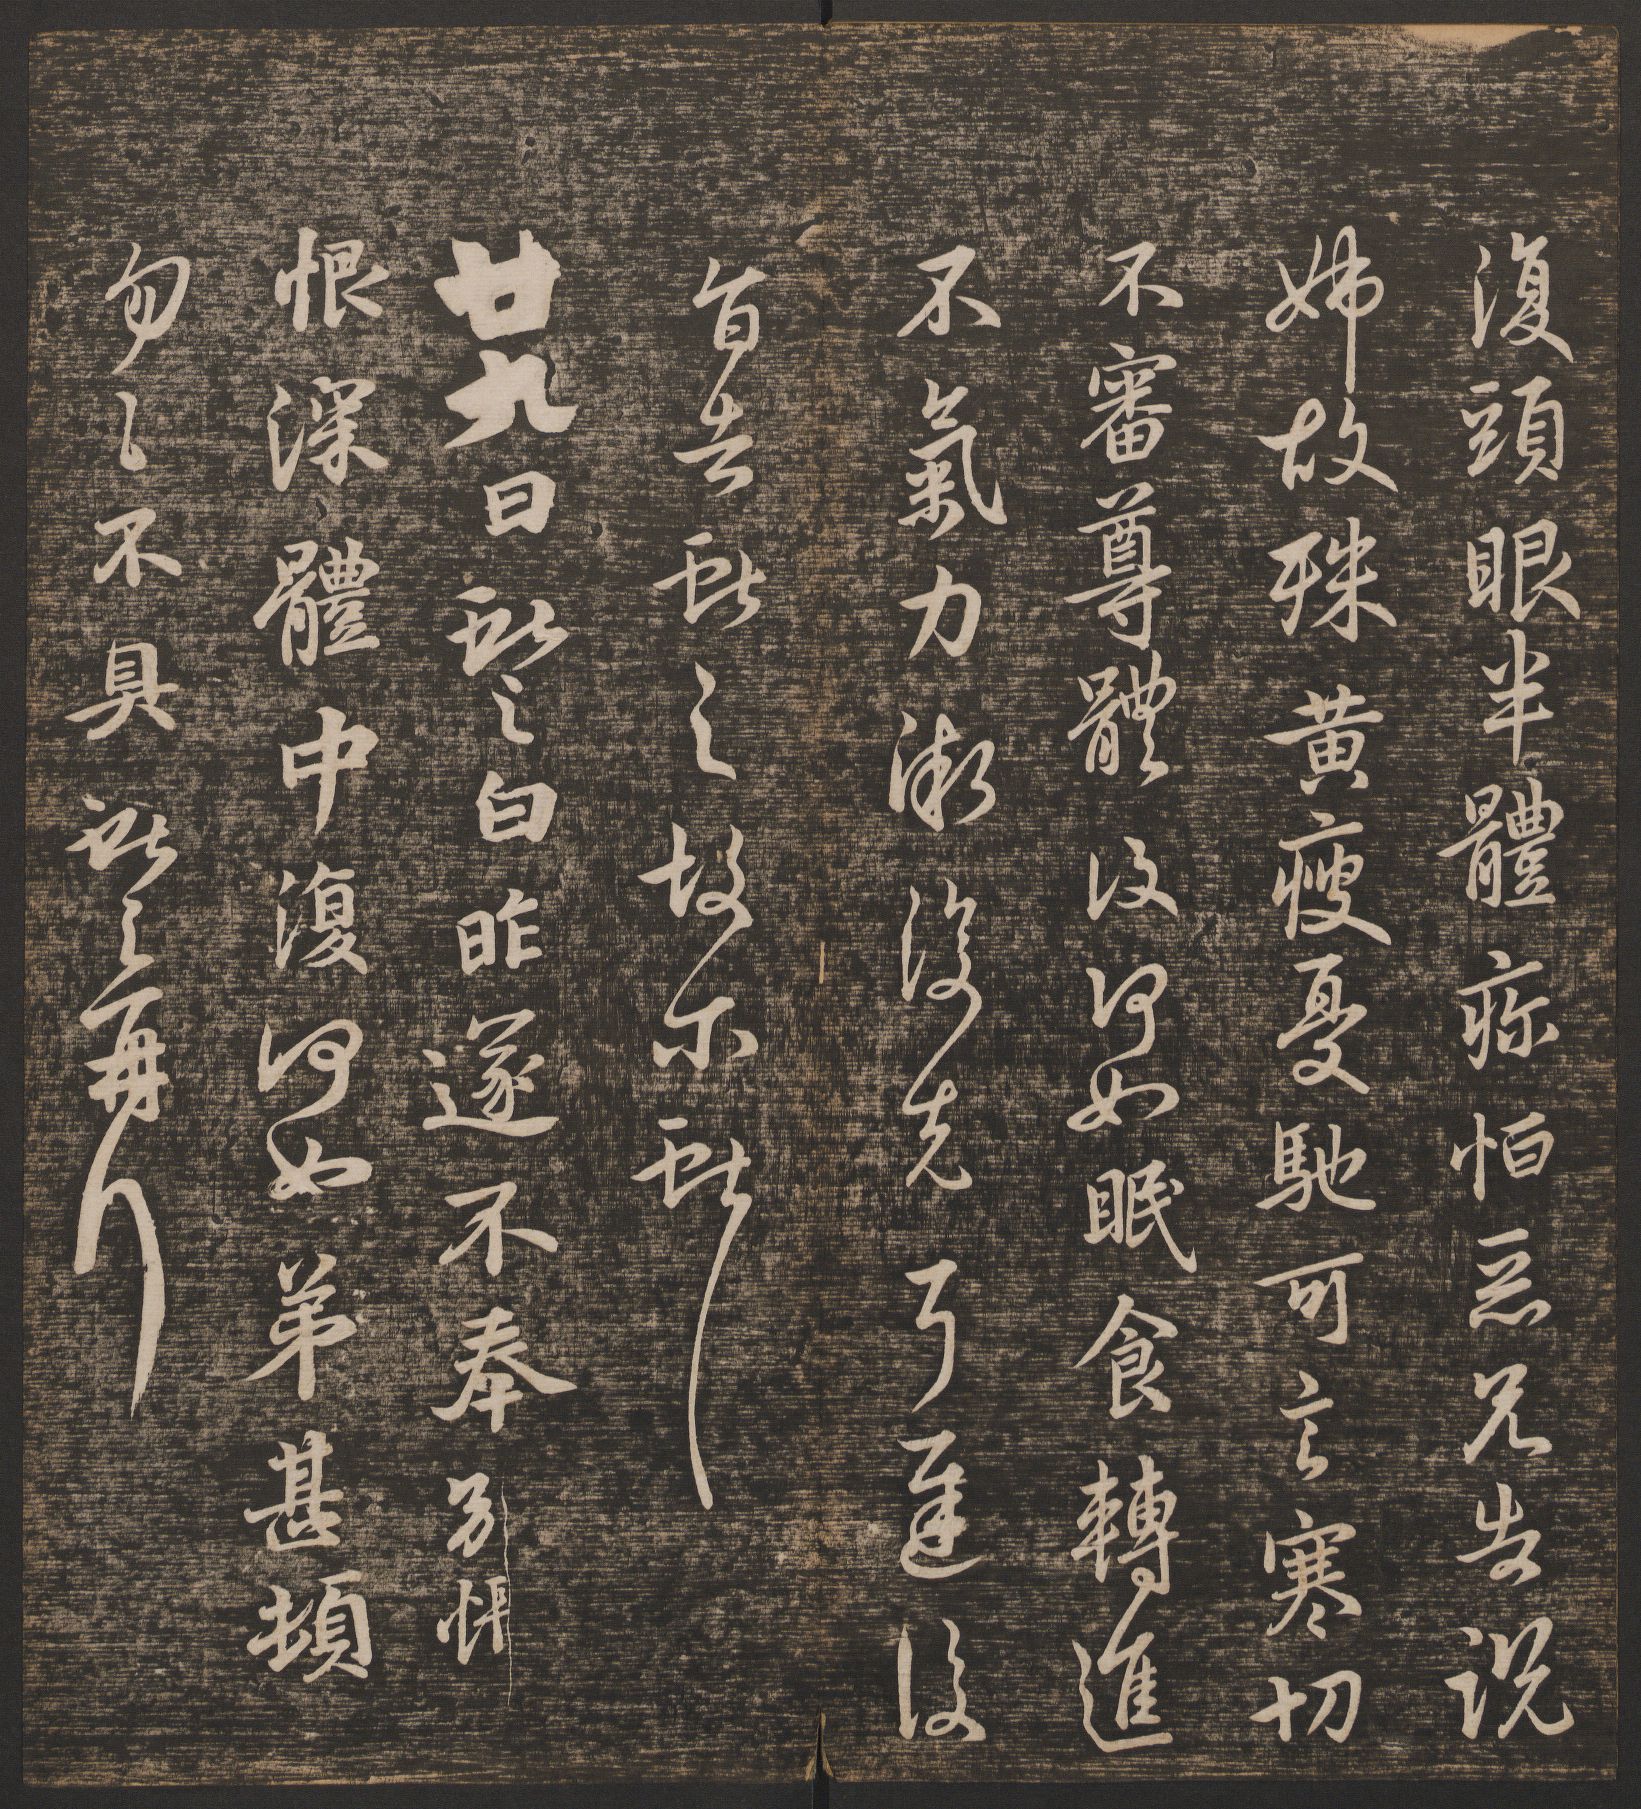 復頭眼半體疼怕惡兄告説
姊故殊黃瘦憂馳可言寒切
不審尊體復何如眠食轉進
不氣力漸復充耳遲復
旨告獻之故尔獻
廿九日獻之白昨遂不奉別悵
恨深體中復何如弟甚頓
匆匆不具獻之再拜